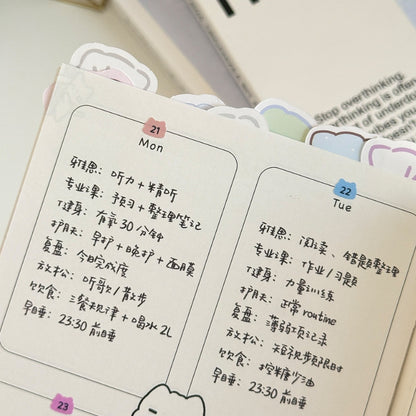 Stop overthinking.
21
Mon
雅思：听力＋精听
专业课：预习＋整理笔记
健身：有氧30分钟
护肤：早护＋晚护＋面膜
复盘：今日完成度
放松：听歌/散步
饮食：三餐规律＋喝水2L
早睡：23:30前睡
22
Tue
雅思：阅读、错题整理
专业课：作业/习题
健身：力量训练
护肤：正常routine
复盘：薄弱项记录
放松：短视频限时
饮食：控糖少油
早睡：23:30前睡
23